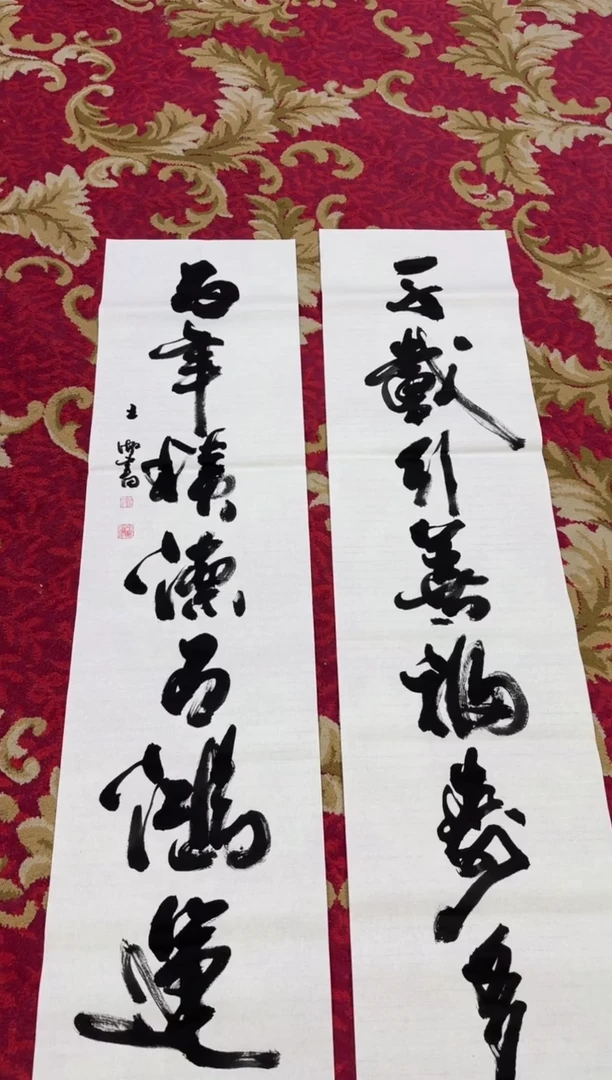 千載引善福壽多
百年積德有鴻運
王 書